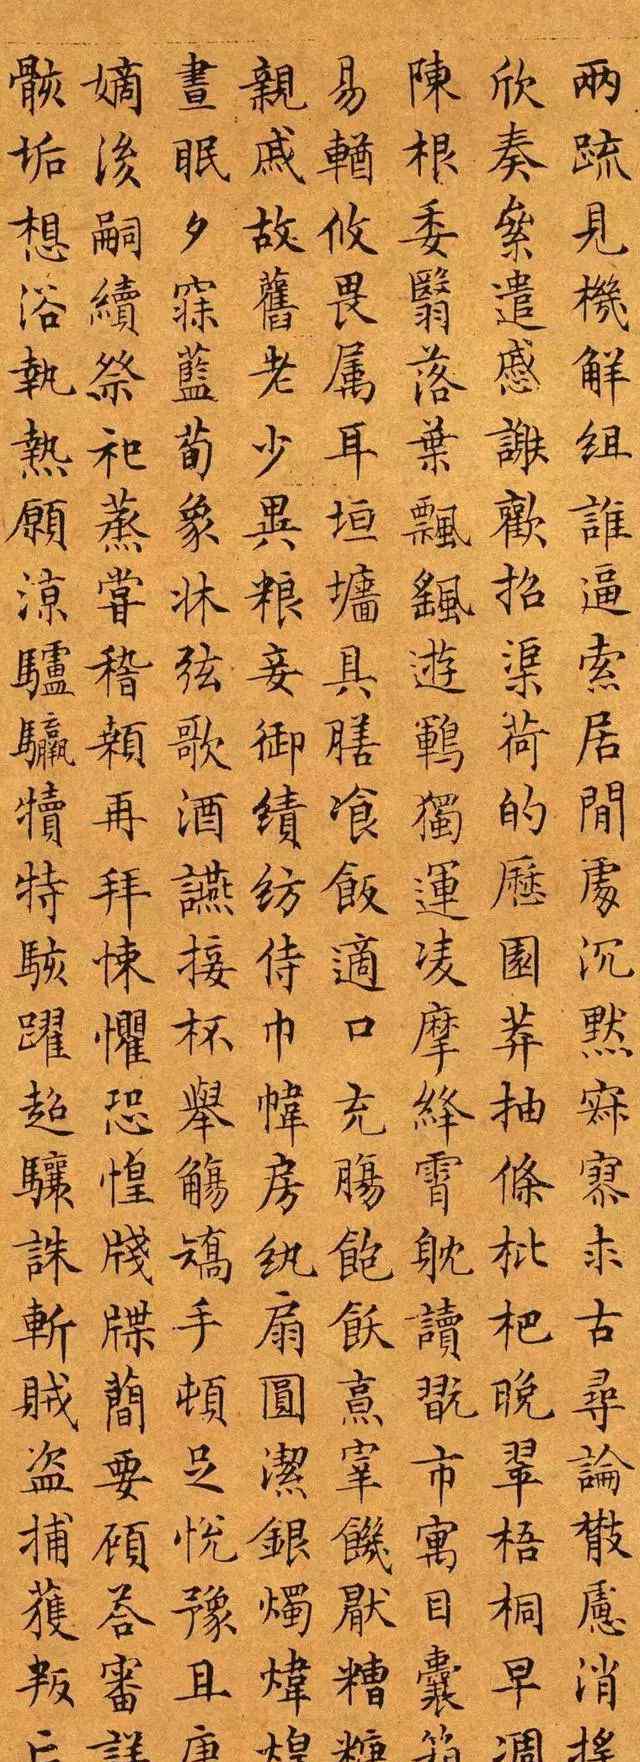 兩疏見機解組誰逼索居閒處沉默寂寥求古尋論散慮消搖
欣奏絫遣慼謝歡招渠荷的歷園莽抽條枇杷晚翠梧桐早凋
陳根委翳落葉飄颻遊鵾獨運凌摩絳霄躭讀翫市寓目囊箱
易輶攸畏属耳垣墻具膳飡飯適口充腸飽飫烹宰饑厭糟糠
親戚故舊老少異粮妾御績紡侍巾帷房紈扇圓潔銀燭煒煌
晝眠夕寐藍筍象牀弦歌酒讌接杯舉觴矯手頓足悅豫且康
嫡後嗣續祭祀蒸嘗稽顙再拜悚懼恐惶牋牒簡要顧答審詳
骸垢想浴執熱願涼驢騾犢特駭躍超驤誅斬賊盜捕獲叛亡